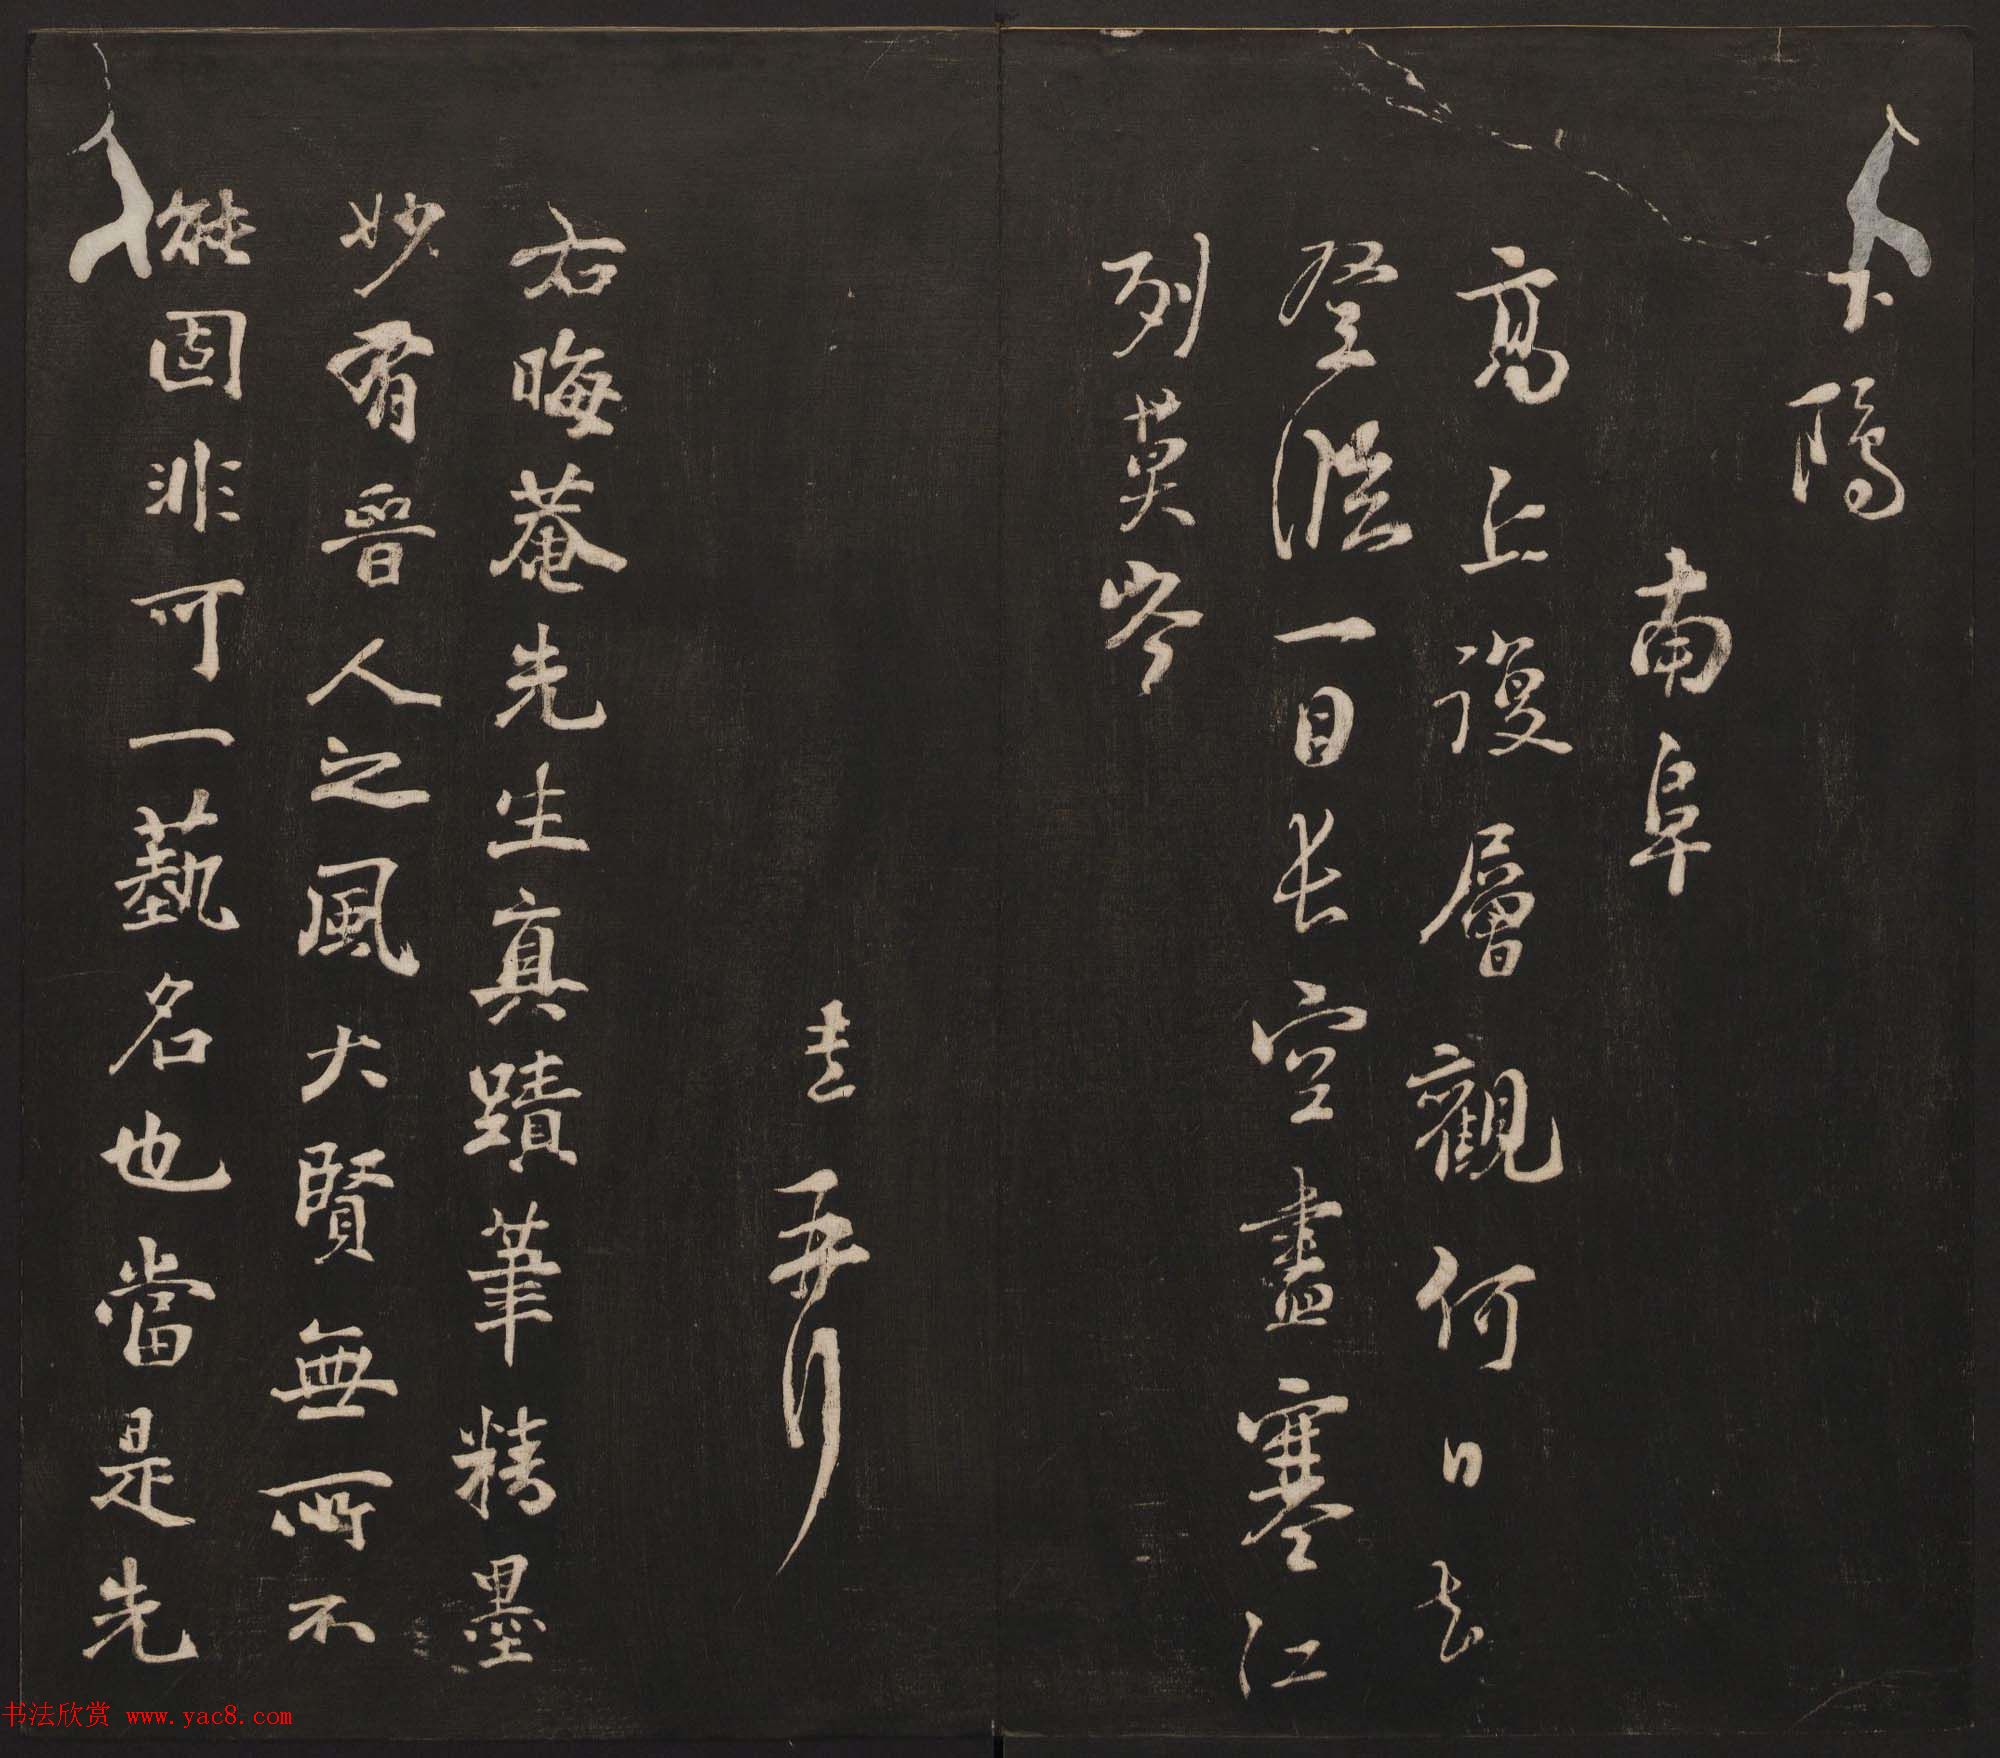 下鷗
南阜
高丘復層觀何日去
登臨一目長空盡寒江
列莫岑
熹再拜
右晦菴先生真蹟筆精墨
妙有晉人之風大賢無所不
能固非可一藝名也當是先
书法欣赏 www.yac8.com